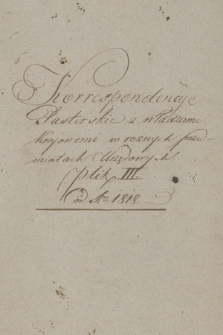 Korrespondencye
Pasterskie z władzami
krajowemi w roznych prze
miotach Urzędowych
Plik III
od Ru 1818.